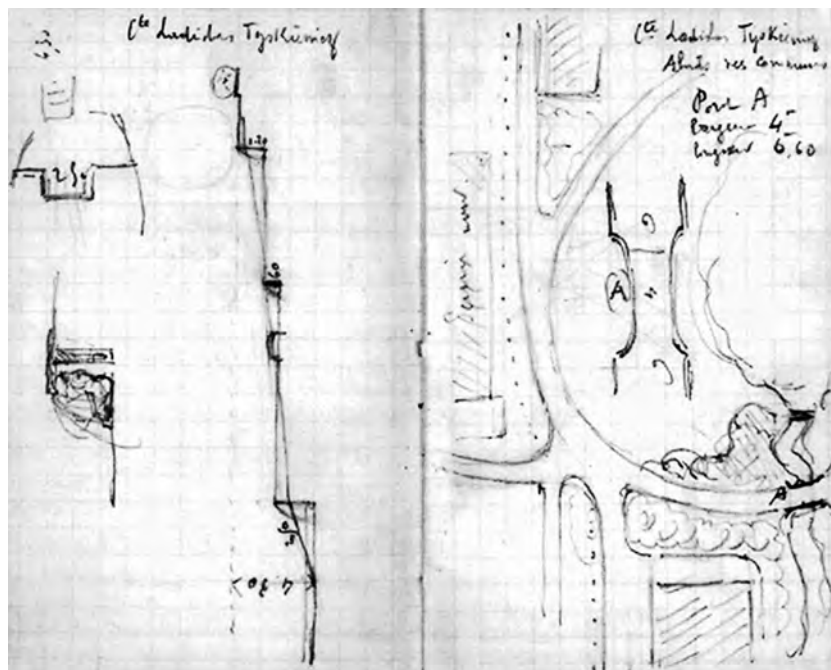 Cte Ladislas Tyskiewicz
4,30
25
0.20
60
4.30
Cte Ladislas Tyskiewicz
Abords des communs
Pont A
largeur 4
longueur 6,60
A
A